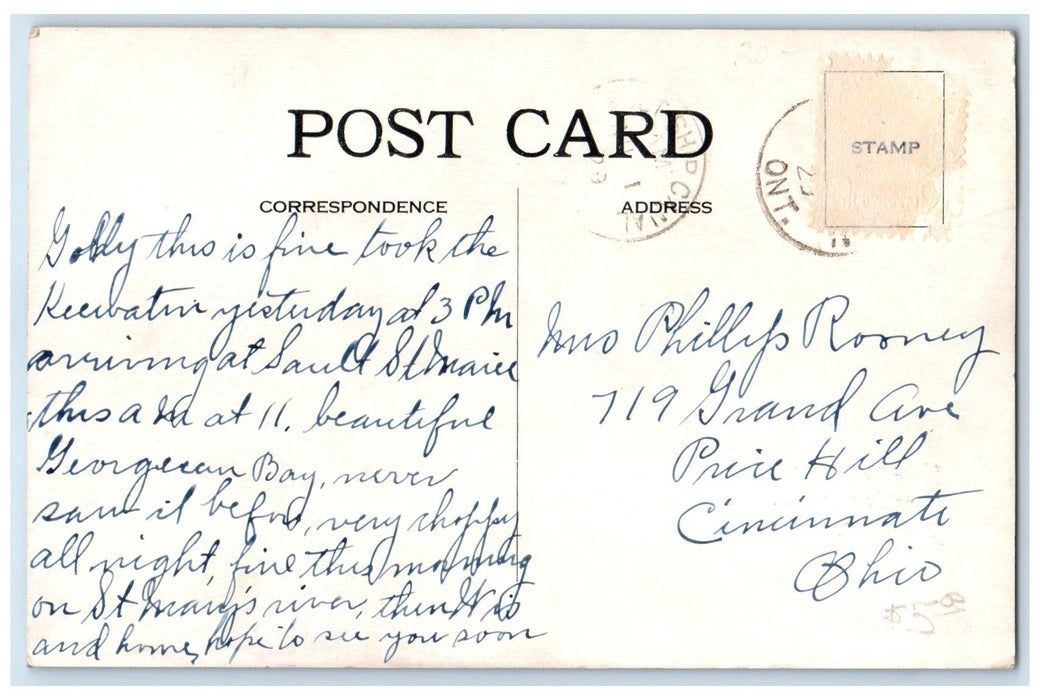 POST CARD
STAMP
ONT.
CORRESPONDENCE
ADDRESS
Golly this is fine took the
Keewatin yesterday at 3 PM
arriving at Sault St Marie
this a M at 11. beautiful
Georgeean Bay, never
saw it before, very choppy
all night, fine this morning
on St Mary's river, then Wis
and home, hope to see you soon
Mrs Phillips Rooney
719 Grand Ave
Price Hill
Cincinnati
Ohio
$5